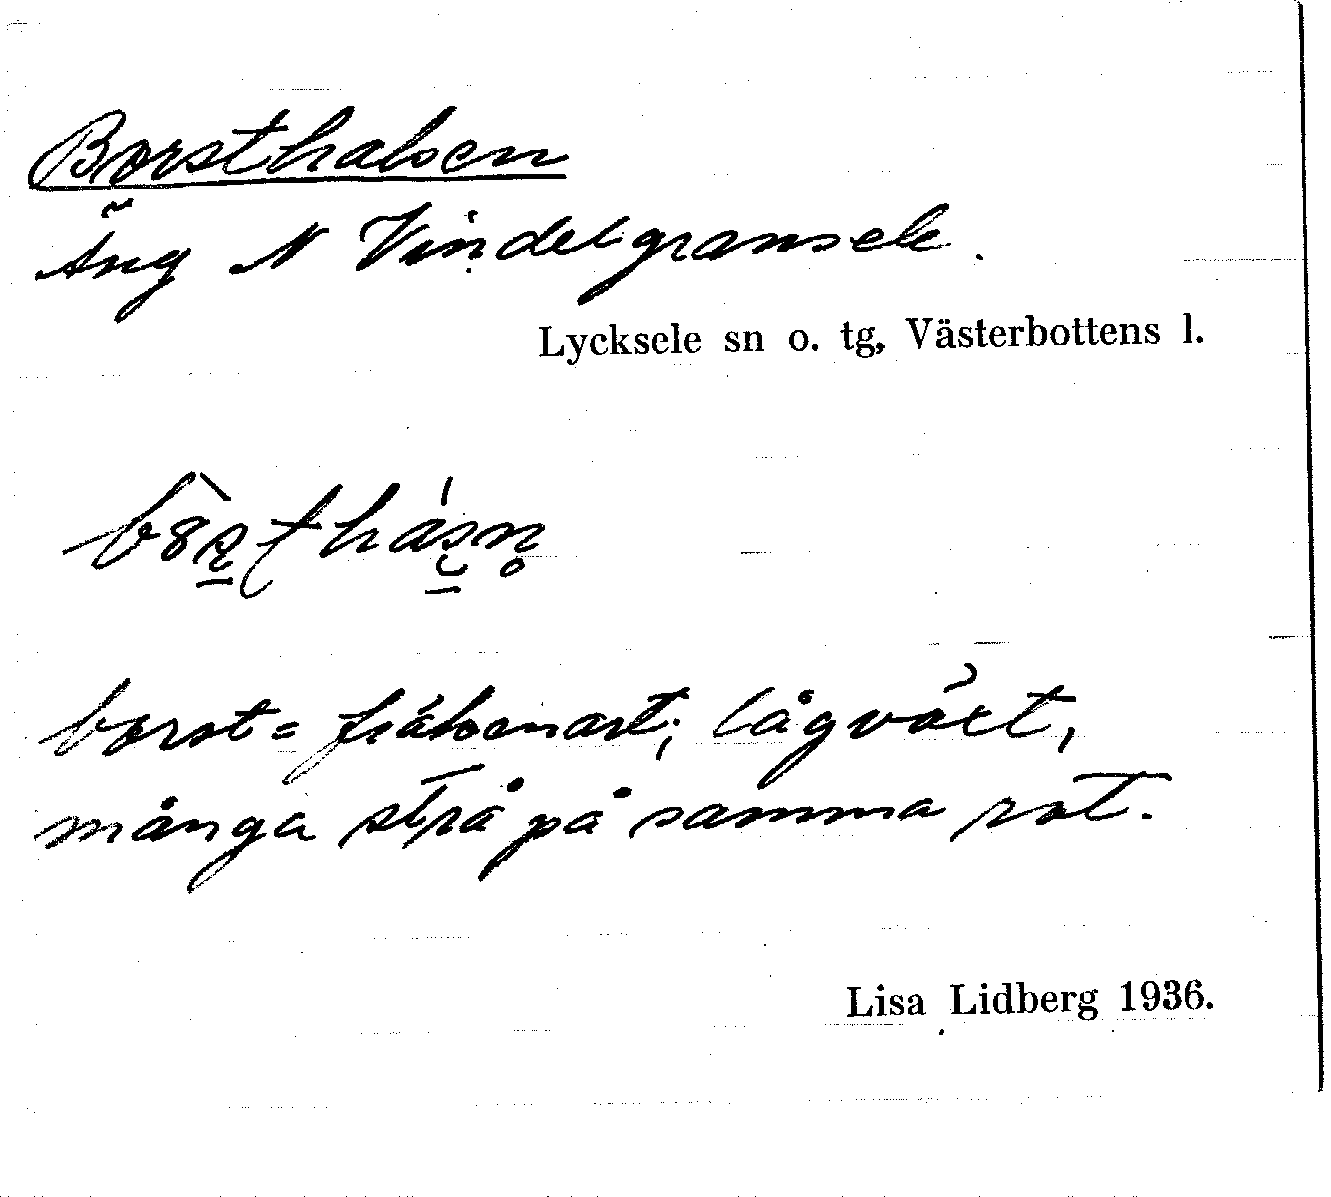 Borsthalsen
Äng N Vindelgransele.
Lycksele sn o. tg, Västerbottens l.
borst = fräkenart; lågväxt,
många strå på samma rot.
Lisa Lidberg 1936.